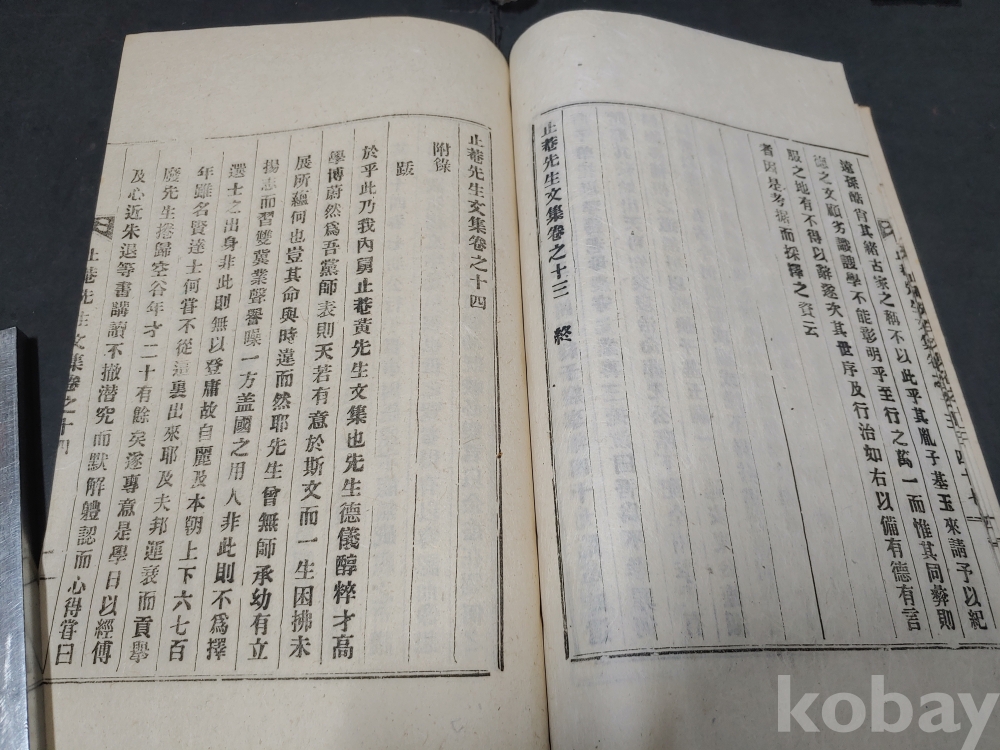 遠孫皓首其緖古家之稱不以此乎其胤子基玉來請予以紀
之文顧劣識謏學不能彰明乎至行之萬一而惟其同彜則
服之地有不得以辭遂次其世序及行治如右以備有德有言
者因是考據而採擇之資云
止菴先生文集卷之十三 終
止菴先生文集卷之十四
附錄
跋
於乎此乃我內舅止菴黃先生文集也先生德儀醇粹才高
學博蔚然爲吾黨師表則天若有意於斯文而一生困拂未
展所蘊何也豈其命與時違而然耶先生曾無師承幼有立
揚志而習雙冀業聲譽噪一方盖國之用人非此則不爲擇
選士之出身非此則無以登庸故自麗及本朝上下六七百
年雖名賢達士何嘗不從這裏出來耶及夫邦運衰而貢擧
廢先生捲歸空谷年才二十有餘矣遂專意是學日以經傳
及心近朱退等書講讀不撤潛究而默解體認而心得嘗曰
止菴先生文集卷之十四
kobay